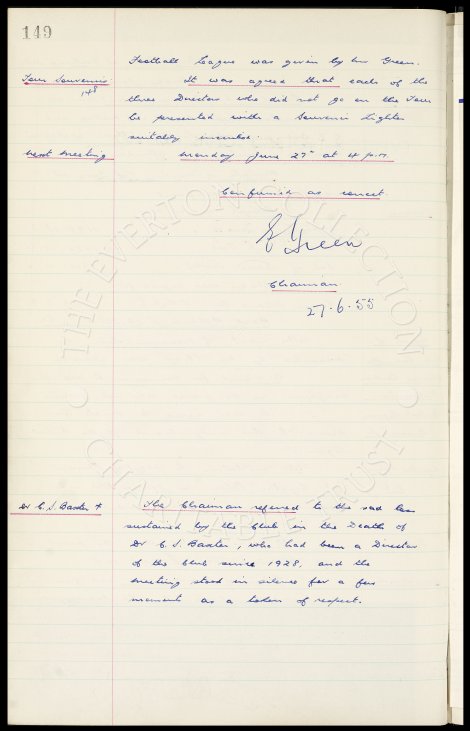 149
Football League was given by Mr Green.
Tour Souvenirs
148
It was agreed that each of the
three Directors who did not go on the Tour
be presented with a Souvenir Lighter
suitably inscribed.
Next Meeting
Monday June 27th at 4 p.m.
Confirmed as correct
E Green
Chairman
27.6.55
THE EVERTON COLLECTION
CHARITABLE TRUST
Dr C.S. Baxter +
The Chairman referred to the sad loss
sustained by the Club in the Death of
Dr C.S. Baxter, who had been a Director
of the Club since 1928, and the
meeting stood in silence for a few
moments as a token of respect.